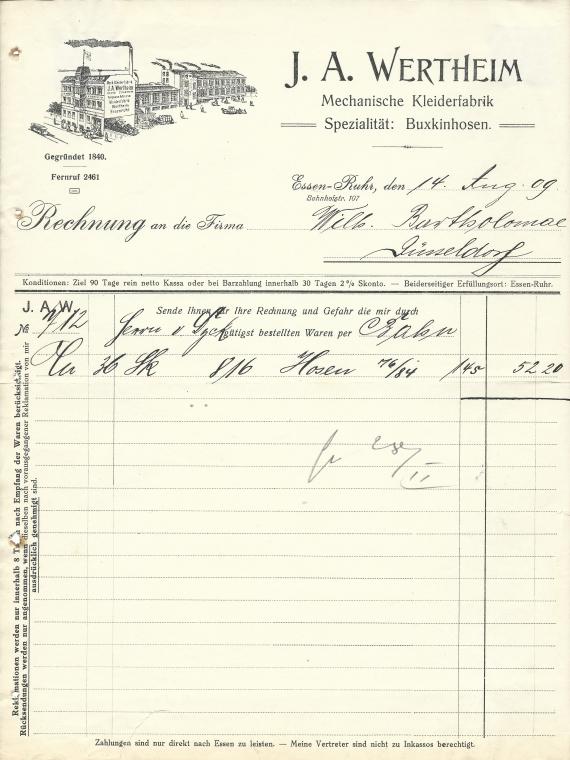 J. A. WERTHEIM
Mechanische Kleiderfabrik
Spezialität: Buxkinhosen.
J.A. Wertheim
Gegründet 1840.
Fernruf 2461
Essen-Ruhr, den 14. Aug. 09
Bahnhofstr. 107
Rechnung an die Firma Wilh. Bartholomae
Düsseldorf
Konditionen: Ziel 90 Tage rein netto Kassa oder bei Barzahlung innerhalb 30 Tagen 2% Skonto. — Beiderseitiger Erfüllungsort: Essen-Ruhr.
J. A. W.
Sende Ihnen für Ihre Rechnung und Gefahr die mir durch
№ 12 Herrn v. Dyck gütigst bestellten Waren per Bahn
36 Sk 8/16 Hosen 76/84 145 52 20
Reklamationen werden nur innerhalb 8 Tagen nach Empfang der Waren berücksichtigt.
Rücksendungen werden nur angenommen, wenn dieselben nach vorausgegangener Reklamation von mir
ausdrücklich genehmigt sind.
Zahlungen sind nur direkt nach Essen zu leisten. — Meine Vertreter sind nicht zu Inkassos berechtigt.